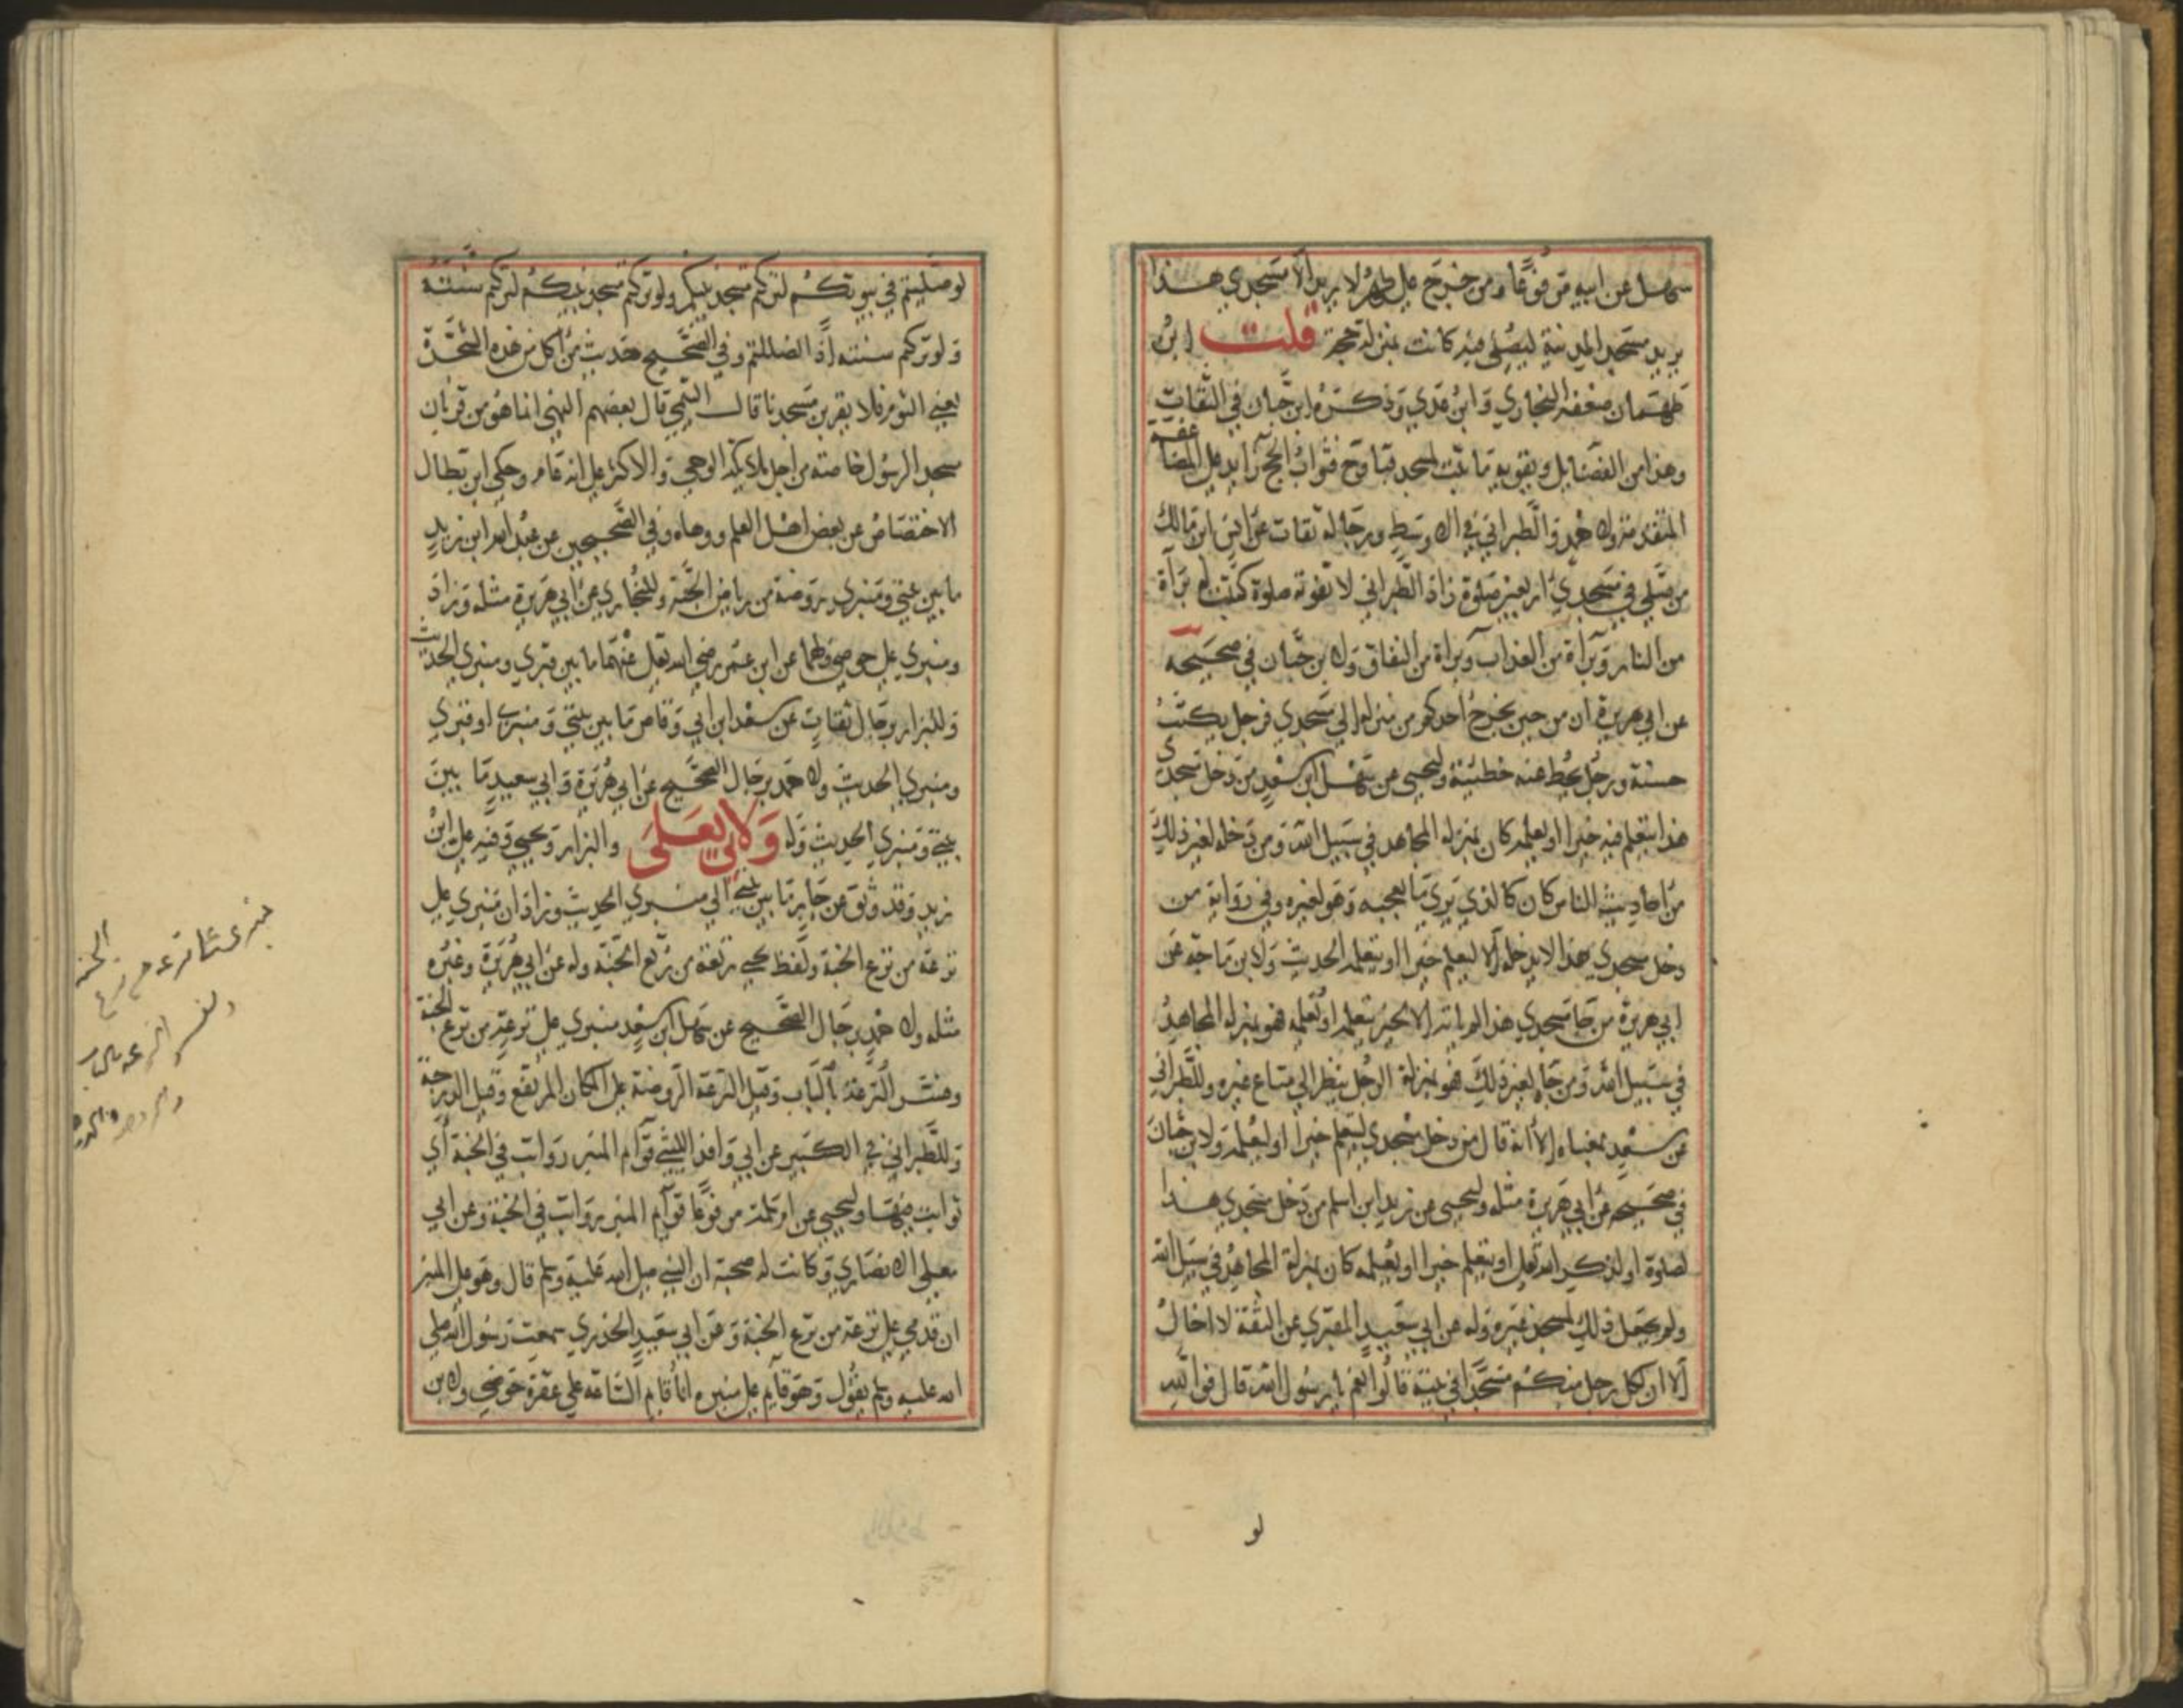 سهل عن ابيه مرفوعا ومن خرج على طهر لا يريد الا مسجدي هذا
يريد مسجد المدينة ليصلي فيه كانت بمنزلة حجة قلت ابن
طهمان ضعفه البخاري وابن عدي وذكره ابن حبان في الثقات
وهذا من الفضايل ويقويه ما ثبت لمسجد قبا وح فثواب الحج زايد على المضاعفة
المتقدمة ولاحمد والطبراني في الاوسط ورجاله ثقات عن انس ابن مالك
من صلى في مسجدي اربعين صلوة زاد الطبراني لا تفوته صلوة كتبت له براة
من النار وبراة من العذاب وبراة من النفاق ولابن حبان في صحيحه
عن ابي هريرة ان من حين يخرج احدكم من منزله الي مسجدي فرجل يكتب
حسنة ورجل يحط عنه خطيئة وليحيى عن سهل ابن سعد من دخل مسجدي
هذا ليتعلم فيه خيرا او يعلمه كان بمنزلة المجاهد في سبيل الله ومن دخله لغير ذلك
من احاديث الناس كان كالذي يري ما يعجبه وهو لغيره وفي رواية من
دخل مسجدي هذا لا يدخله الا ليعلم خيرا او يتعلمه الحديث ولابن ماجة عن
ابي هريرة من جا مسجدي هذا لم ياته الا لخير يتعلمه او يعلمه فهو بمنزلة المجاهد
في سبيل الله ومن جا لغير ذلك فهو بمنزلة الرجل ينظر الي متاع غيره وللطبراني
عن سعد بمعناه الا انه قال من دخل مسجدي ليتعلم خيرا او ليعلمه ولابن حبان
في صحيحه عن ابي هريرة مثله وليحيى عن زيد ابن اسلم من دخل مسجدي هذا
لصلوة او لذكر الله تعلى او يتعلم خيرا او يعلمه كان بمنزلة المجاهد في سبيل الله
ولم يجعل ذلك لمسجد غيره وله عن ابي سعيد المقبري عن الثقة لا اخال
الا ان لكل رجل منكم مسجدا في بيته قالوا نعم يا رسول الله قال فوالله
لو
لو صليتم في بيوتكم لتركتم مسجد نبيكم ولو تركتم مسجد نبيكم لتركتم سنته
ولو تركتم سنته اذا لضللتم وفي الصحيح حديث من اكل من هذه الشجرة
يعني الثوم فلا يقربن مسجدنا قال التيمي قال بعضهم النهي انما هو من قربان
مسجد الرسول خاصة من اجل ملايكة الوحي والاكثر على انه عام وحكي ابن بطال
الاختصاص عن بعض اهل العلم ووهاه وفي الصحيحين عن عبد الله ابن زيد
ما بين بيتي ومنبري روضة من رياض الجنة وللبخاري عن ابي هريرة مثله وزاد
ومنبري على حوضي ولهما عن ابن عمر رضي الله تعلى عنهما ما بين قبري ومنبري الحديث
وللبزار برجال ثقات عن سعد ابن ابي وقاص ما بين بيتي ومنبري او قبري
ومنبري الحديث ولاحمد برجال الصحيح عن ابي هريرة وابي سعيد ما بين
بيتي ومنبري الحديث وله ولابي يعلى والبزار ويحيى وفيه على ابن
زيد وقد وثق عن جابر ما بين بيتي الي منبري الحديث وزاد ان منبري على
ترعة من ترع الجنة ولفظ يحيى ترعة من ترع الجنة وله عن ابي هريرة وغيره
مثله ولاحمد برجال الصحيح عن سهل ابن سعد منبري على ترعة من ترع الجنة
وفسر الترعة بالباب وقيل الترعة الروضة على المكان المرتفع وقيل الدرجة
وللطبراني في الكبير عن ابي واقد الليثي قوائم المنبر رواتب في الجنة اي
ثوابت فيها وليحيى عن ام سلمة مرفوعا قوايم المنبر رواتب في الجنة وعن ابي
معلى الانصاري وكانت له صحبة ان النبي صلى الله عليه وسلم قال وهو على المنبر
ان قدمي على ترعة من ترع الجنة وعن ابي سعيد الخدري سمعت رسول الله صلى
الله عليه وسلم يقول وهو قايم على منبره انا قايم الساعة على عقر حوضي ولابن